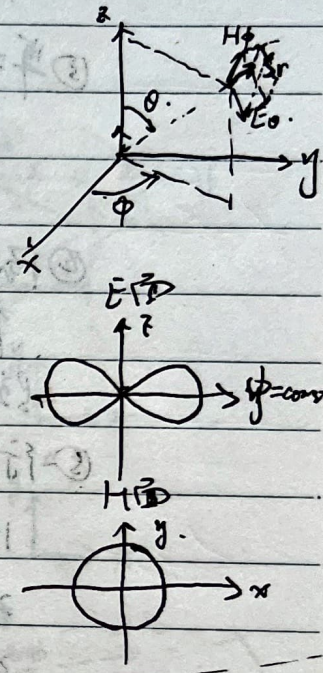 z
Hφ
Sr
θ.
Eθ.
y
φ
x
E面
z
φ=const
H面
y.
x